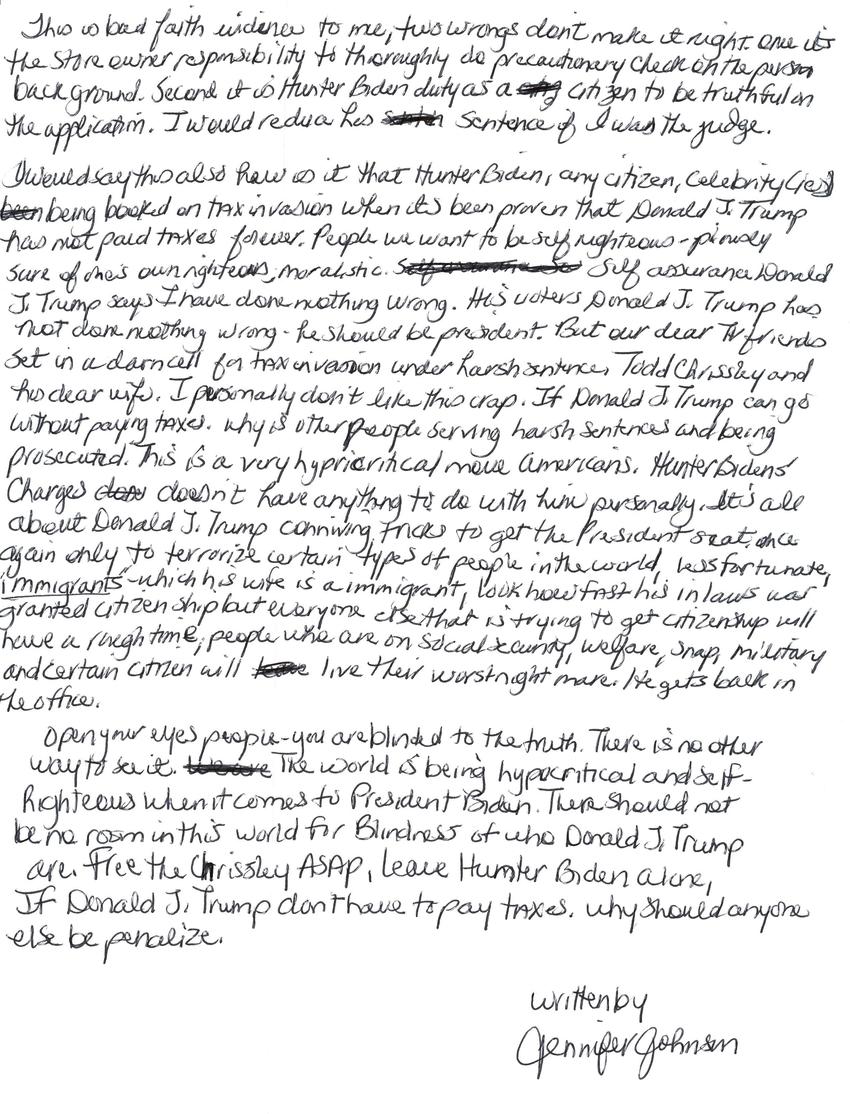 This is bad faith evidence to me, two wrongs don't make it right. one it's
the store owner responsibility to thoroughly do precautionary check on the person
back ground. Second it is Hunter Biden duty as a citizen to be truthful on
the application. I would reduce his sentence if I was the judge.
I would say this also how is it that Hunter Biden, any citizen, celebrity(ies)
being booked on tax invasion when it's been proven that Donald J. Trump
has not paid taxes forever. People we want to be self righteous - piously
sure of one's own righteous, moralistic. Self assurance Donald
J. Trump says I have done nothing wrong. His voters Donald J. Trump has
not done nothing wrong - he should be president. But our dear TV friends
set in a darn cell for tax invasion under harsh sentence, Todd Chrissley and
his dear wife. I personally don't like this crap. If Donald J. Trump can go
without paying taxes. why is other people serving harsh sentences and being
prosecuted. This is a very hypricritical move Americans. Hunter Bidens'
Charges doesn't have anything to do with him personally. It's all
about Donald J. Trump conniving tricks to get the President seat, once
again only to terrorize certain types of people in the world, less fortunate,
immigrants - which his wife is a immigrant, look how fast his in laws was
granted citizenship but everyone else that is trying to get citizenship will
have a rough time, people who are on social security, welfare, snap, military
and certain citizen will live their worst night mare. He gets back in
the office.
Open your eyes people - you are blinded to the truth. There is no other
way to see it. The world is being hypocritical and self-
Righteous when it comes to President Biden. There should not
be no room in this world for Blindness of who Donald J. Trump
are. Free the Chrissley ASAP, leave Hunter Biden alone,
If Donald J. Trump don't have to pay taxes. why should anyone
else be penalize.
written by
Jennifer Johnson